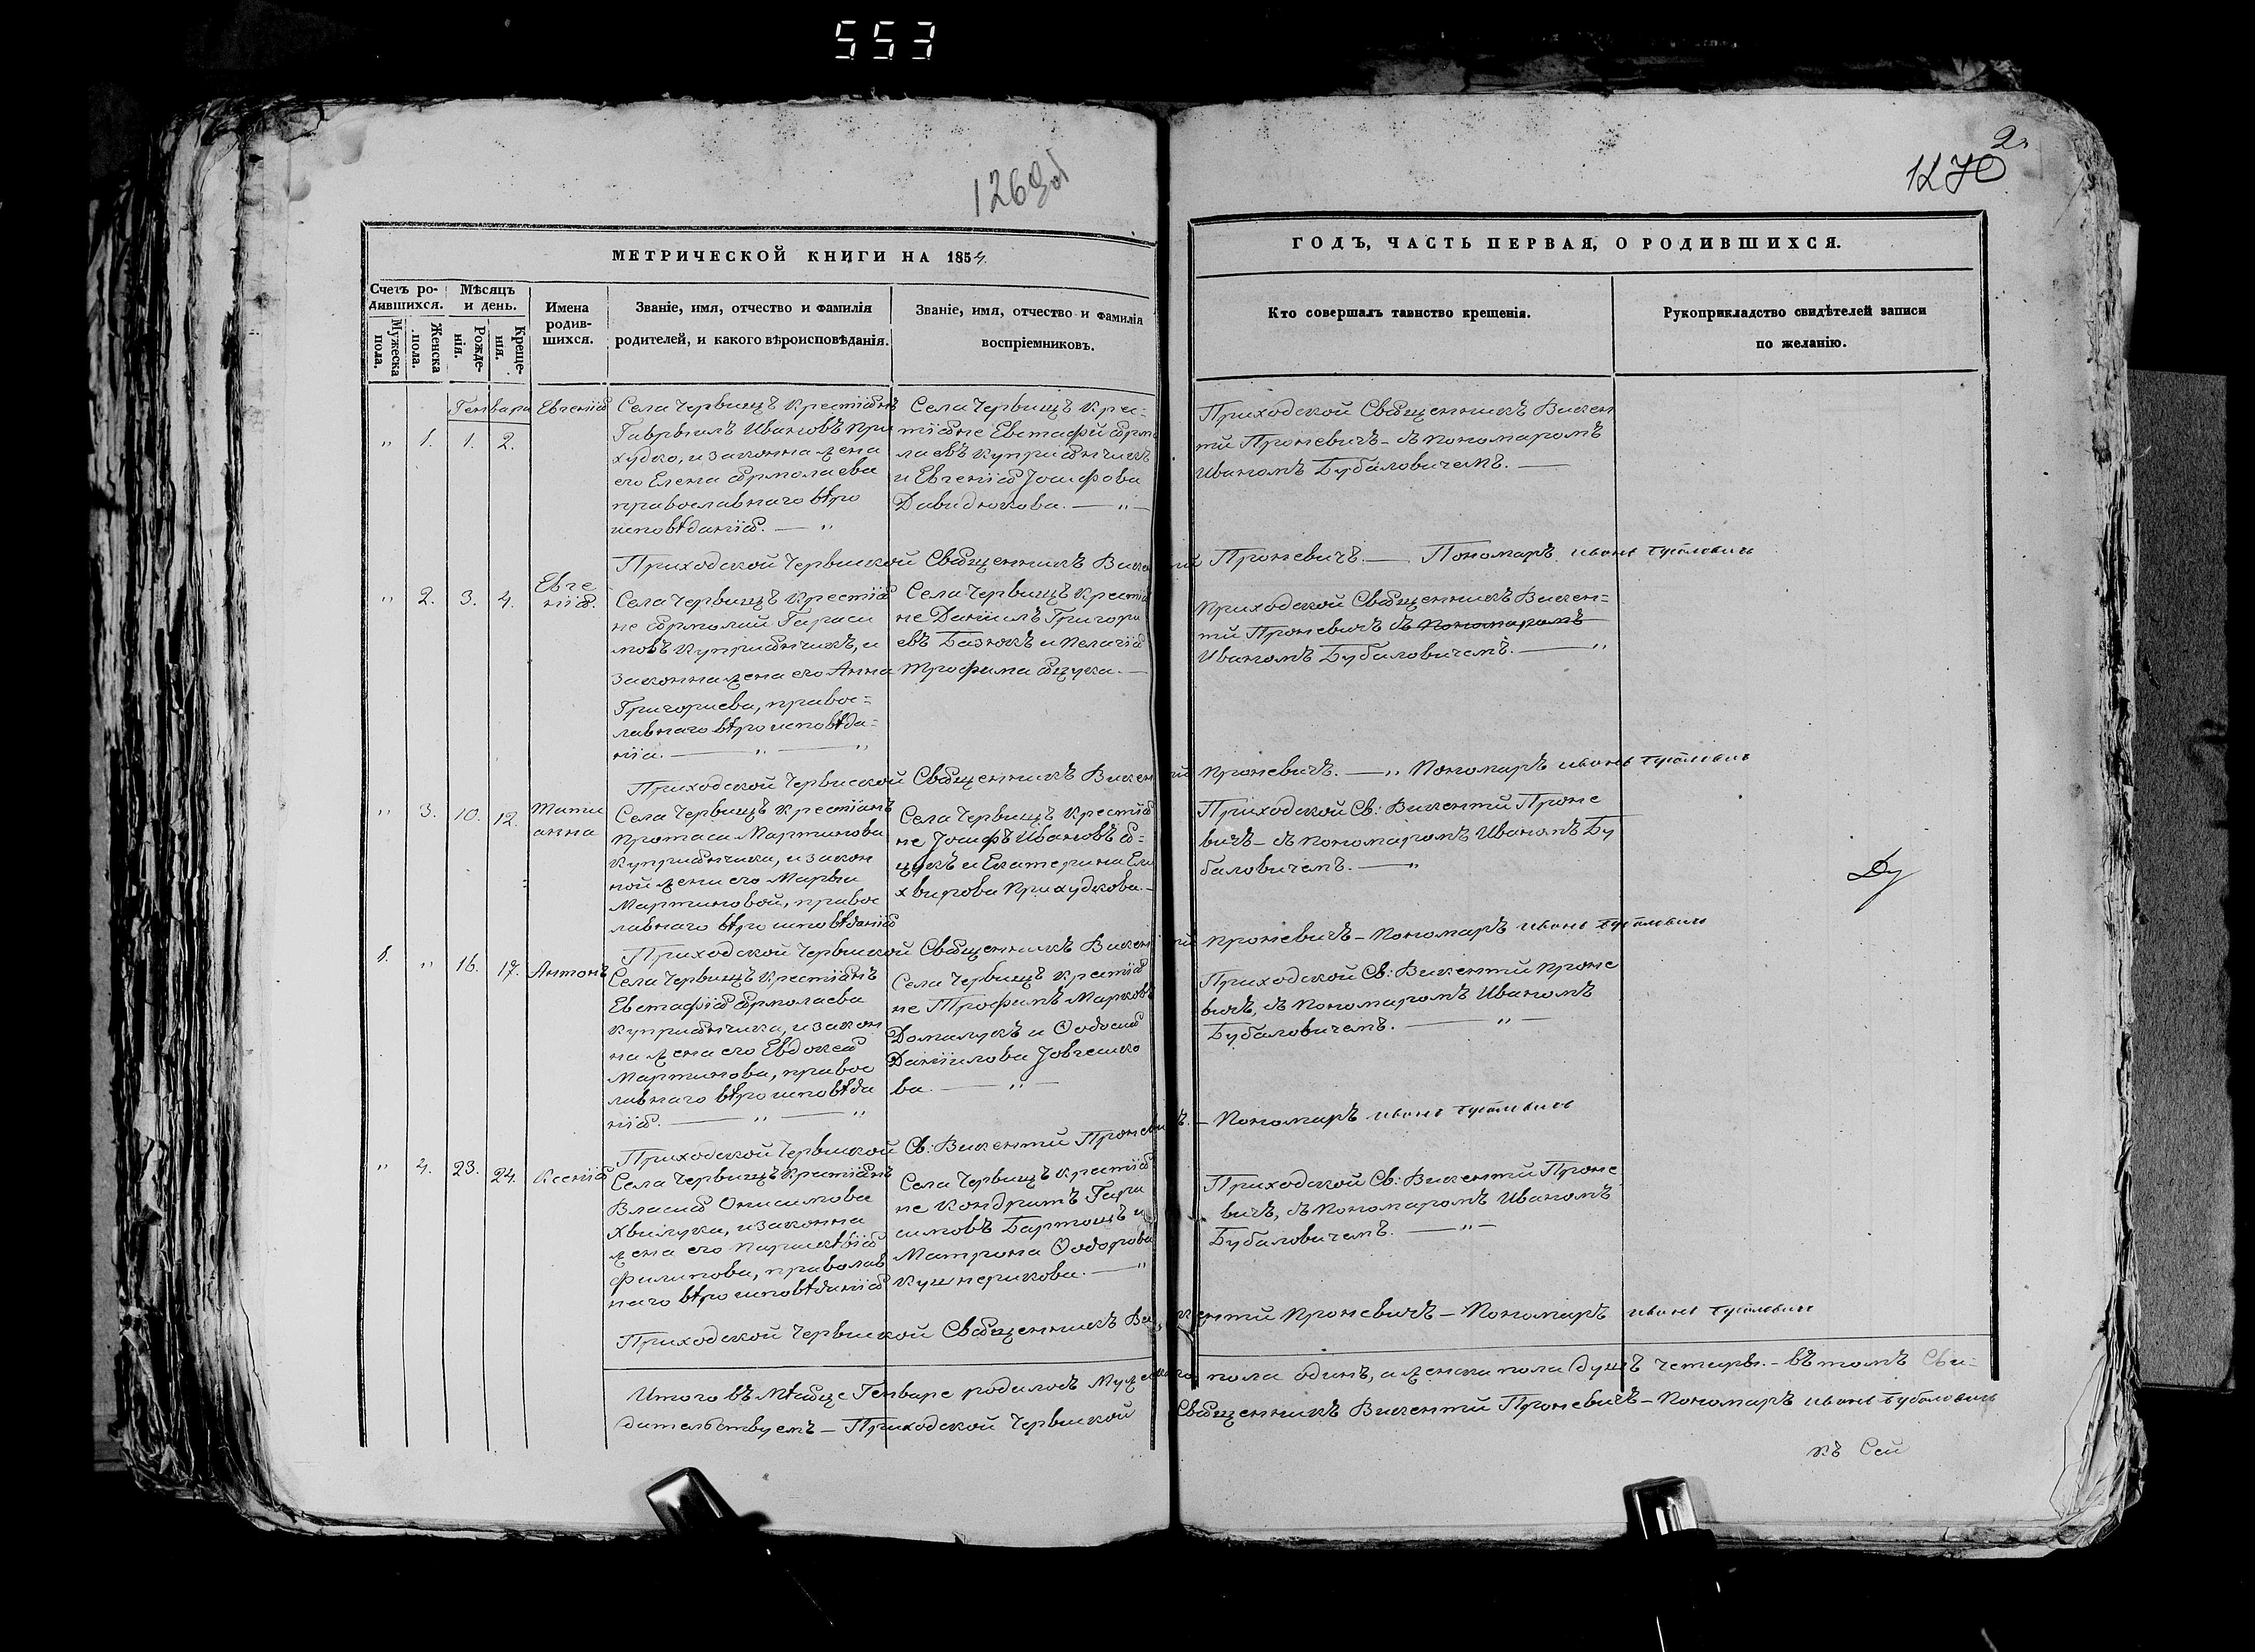 553
1269об
2.
1270
МЕТРИЧЕСКОЙ КНИГИ НА 1854.
ГОДЪ, ЧАСТЬ ПЕРВАЯ, О РОДИВШИХСЯ.
Счетъ ро-
дившихся.
Мужеска
пола.
Женска
пола.
Мѣсяцъ
и день.
Рожде-
нія.
Креще-
нія.
Имена
родив-
шихся.
Званіе, имя, отчество и фамилія
родителей, и какого вѣроисповѣданія.
Званіе, имя, отчество и фамилія
воспріемниковъ.
Кто совершалъ таинство крещенія.
Рукоприкладство свидѣтелей записи
по желанію.
Генвара
„ 1. 1. 2.
Евгенія
Села Червищъ Крестіянъ
Гаврыилъ Ивановъ При
худко, и законна жена
его Елена Ярмолаева
православнаго вѣро
исповѣданія. — „
Села Червищъ Крес=
тіяне Евстафій Ярмо
лаевъ Куприянчикъ
и Евгенія Іосифова
Давидюкова. — „ —
Приходской Священникъ Викен
тй Проневичъ — съ пономаромъ
Иваномъ Бубаловичемъ. —
Приходской Червиской Священникъ Викентій Проневичъ. — Пономаръ иванъ Бубаловичъ
„ 2. 3. 4.
Евге
нія.
Села Червищъ Крестія
не Ярмолай Гараси
мовъ Куприянчикъ, и
законна жена его Анна
Григориева, правос=
лавнаго вѣроисповѣда=
ніа. — „ — „
Села Червищъ Крестія
не Даніилъ Григори
евъ Базюкъ и Пелагія
Трофима Ящука. —
Приходской Священникъ Викен=
тй Проневичъ съ пономаромъ
Иваномъ Бубаловичемъ. — „
Приходской Червиской Священникъ Викентій Проневичъ. — „ Пономаръ иванъ Бубаловичъ
„ 3. 10. 12.
Тати
анна
Села Червищъ Крестіанъ
Протаса Мартинова
Куприянчика, и закон
ной жени его Марыи
Мартиновой, правос
лавнаго вѣро исповѣданія
Села Червищъ Крестія
не Іосифъ Ивановъ Я=
щукъ и Екатерина Ели
хвирова Прихудкова. —
Приходской Св: Викентй Проне
вичъ — съ пономаромъ Иваномъ Бу
баловичемъ. — „
Приходской Червиской Священникъ Викентій Проневичъ — Пономаръ иванъ Бубаловичъ
1. „ 16. 17.
Антонъ
Села Червищъ Крестіянъ
Евстафія Ярмолаева
Куприянчика, и закон
на жена его Евдокея
Мартинова, правос
лавнаго вѣро исповѣда
нія. — „ — „
Села Червищъ Крестія
не Трофимъ Марковъ
Домалукъ и Ѳодосія
Даніилова Іовгешко
ва. — „ —
Приходской Св: Викентй Проне
вичъ, съ Пономаромъ Иваномъ
Бубаловичемъ. — „ —
Приходской Червиской Св: Викентй Проневичъ. — Пономаръ иванъ Бубаловичъ
„ 4. 23. 24.
Ксенія
Села Червищъ Крестіянъ
Власия Онисимова
Хвилука, и законна
жена его Параскѣвія
Филипова, праволав
наго вѣро исповѣданія
Села Червищъ Крестія
не Кондратъ Гара
симовъ Бартошъ и
Матрона Ѳодорова
Кушнерикова. — „
Приходской Св: Викентй Проне
вичъ, съ Пономаромъ Иваномъ
Бубаловичемъ. — „ —
Приходской Червиской Священникъ Викентй Проневичъ — Пономаръ иванъ Бубаловичъ
Итого въ мѣсяце Генваре родилось Мужескаго пола одинъ, а женска пола душъ четыры. — въ томъ Сви=
дительствуемъ — Приходской Червиской Священникъ Викентй Проневичъ — Пономаръ иванъ Бубаловичъ
къ Сей